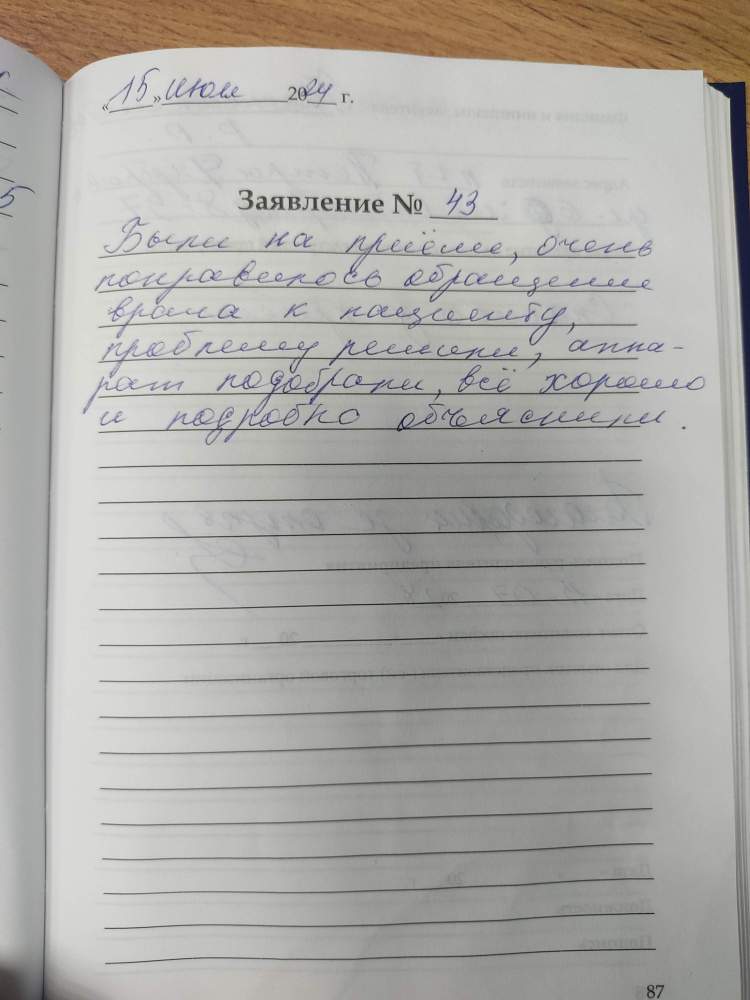 «15» Июля 2024 г.
Заявление № 43
Были на приёме, очень
понравилось обращение
врача к пациенту,
проблему решили, аппа-
рат подобрали, всё хорошо
и подробно объяснили.
87
5